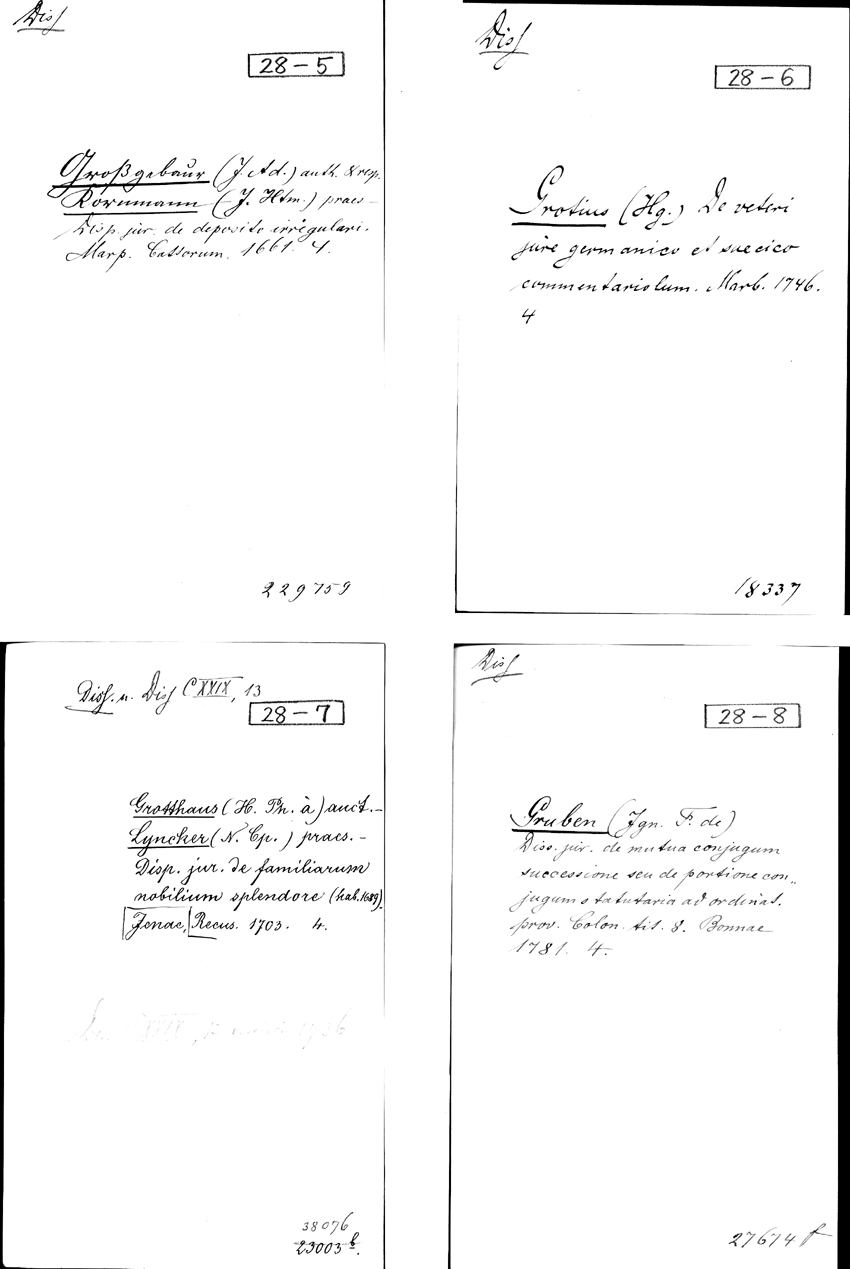 Diss
28-5
Großgebaur (J. Ad.) auth. & resp.
Kornmann (J. Htm.) praes-
Disp. jur. de deposito irregulari.
Marp. Cattorum. 1661. 4.
229759
Diss
28-6
Grotius (Hg.) De veteri
jure germanico et suecico
commentariolum. Marb. 1746.
4
18337
Diss. u. Diss C XXIX, 13
28-7
Grotthaus (H. Ph. à) auct.-
Lyncker (N. Cp.) praes.-
Disp. jur. de familiarum
nobilium splendore (hab. 1689).
Jenae, Recus. 1703. 4.
38076
23003 b.
Diss
28-8
Gruben (Ign. F. de)
Diss. jur. de mutua conjugum
successione seu de portione con„
jugum statutaria ad ordinat.
prov. Colon. tit. 8. Bonnae
1781. 4.
27674 f